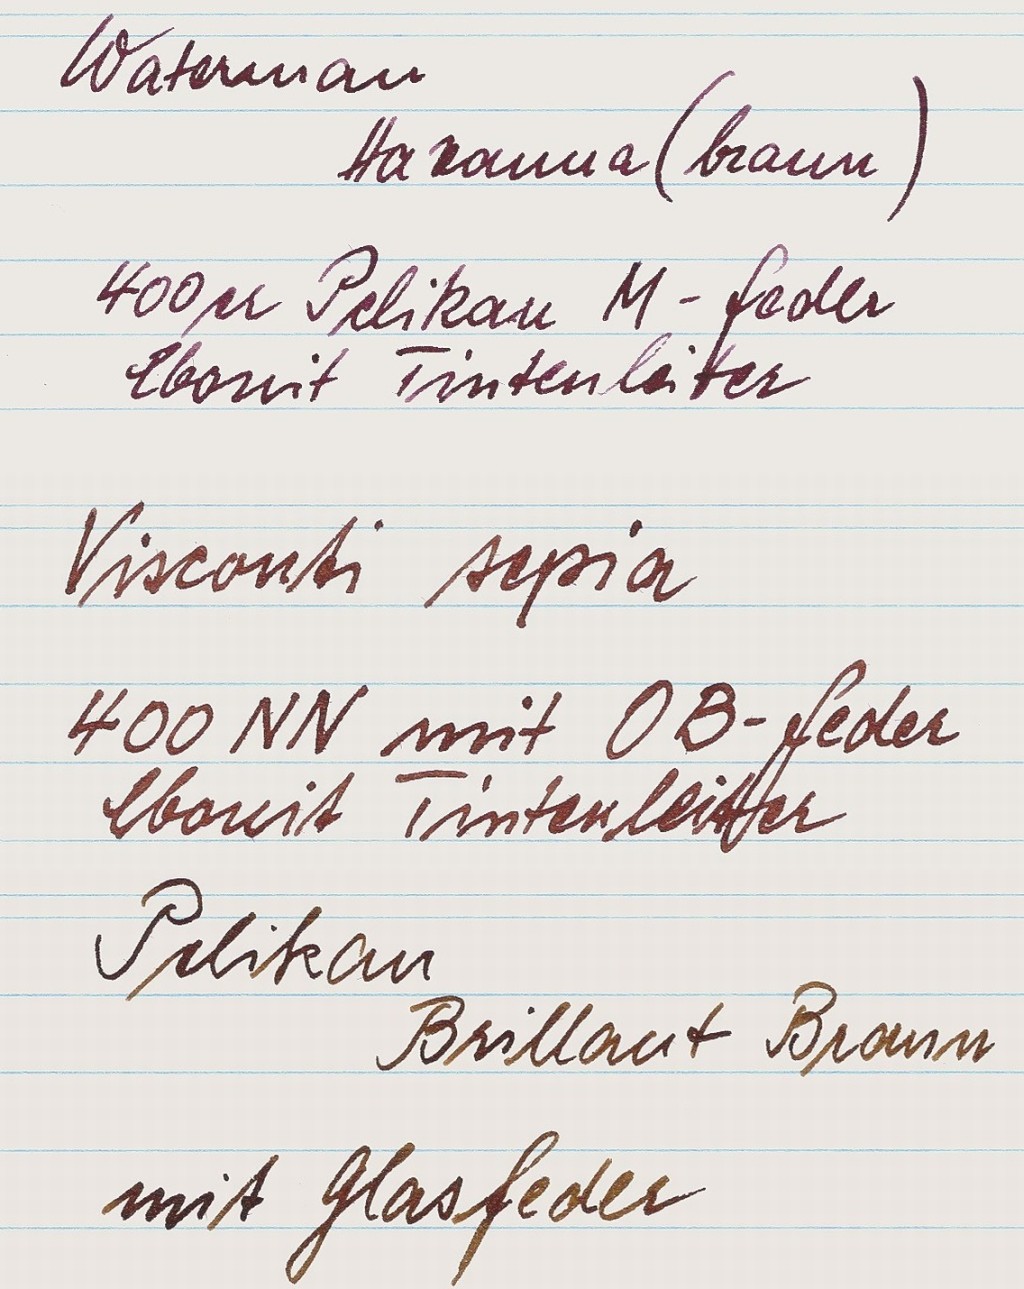 Waterman
Havanna (braun)
400er Pelikan M-feder
Ebonit Tintenleiter
Visconti sepia
400 NN mit OB-feder
Ebonit Tintenleiter
Pelikan
Brillant Braun
mit Glasfeder